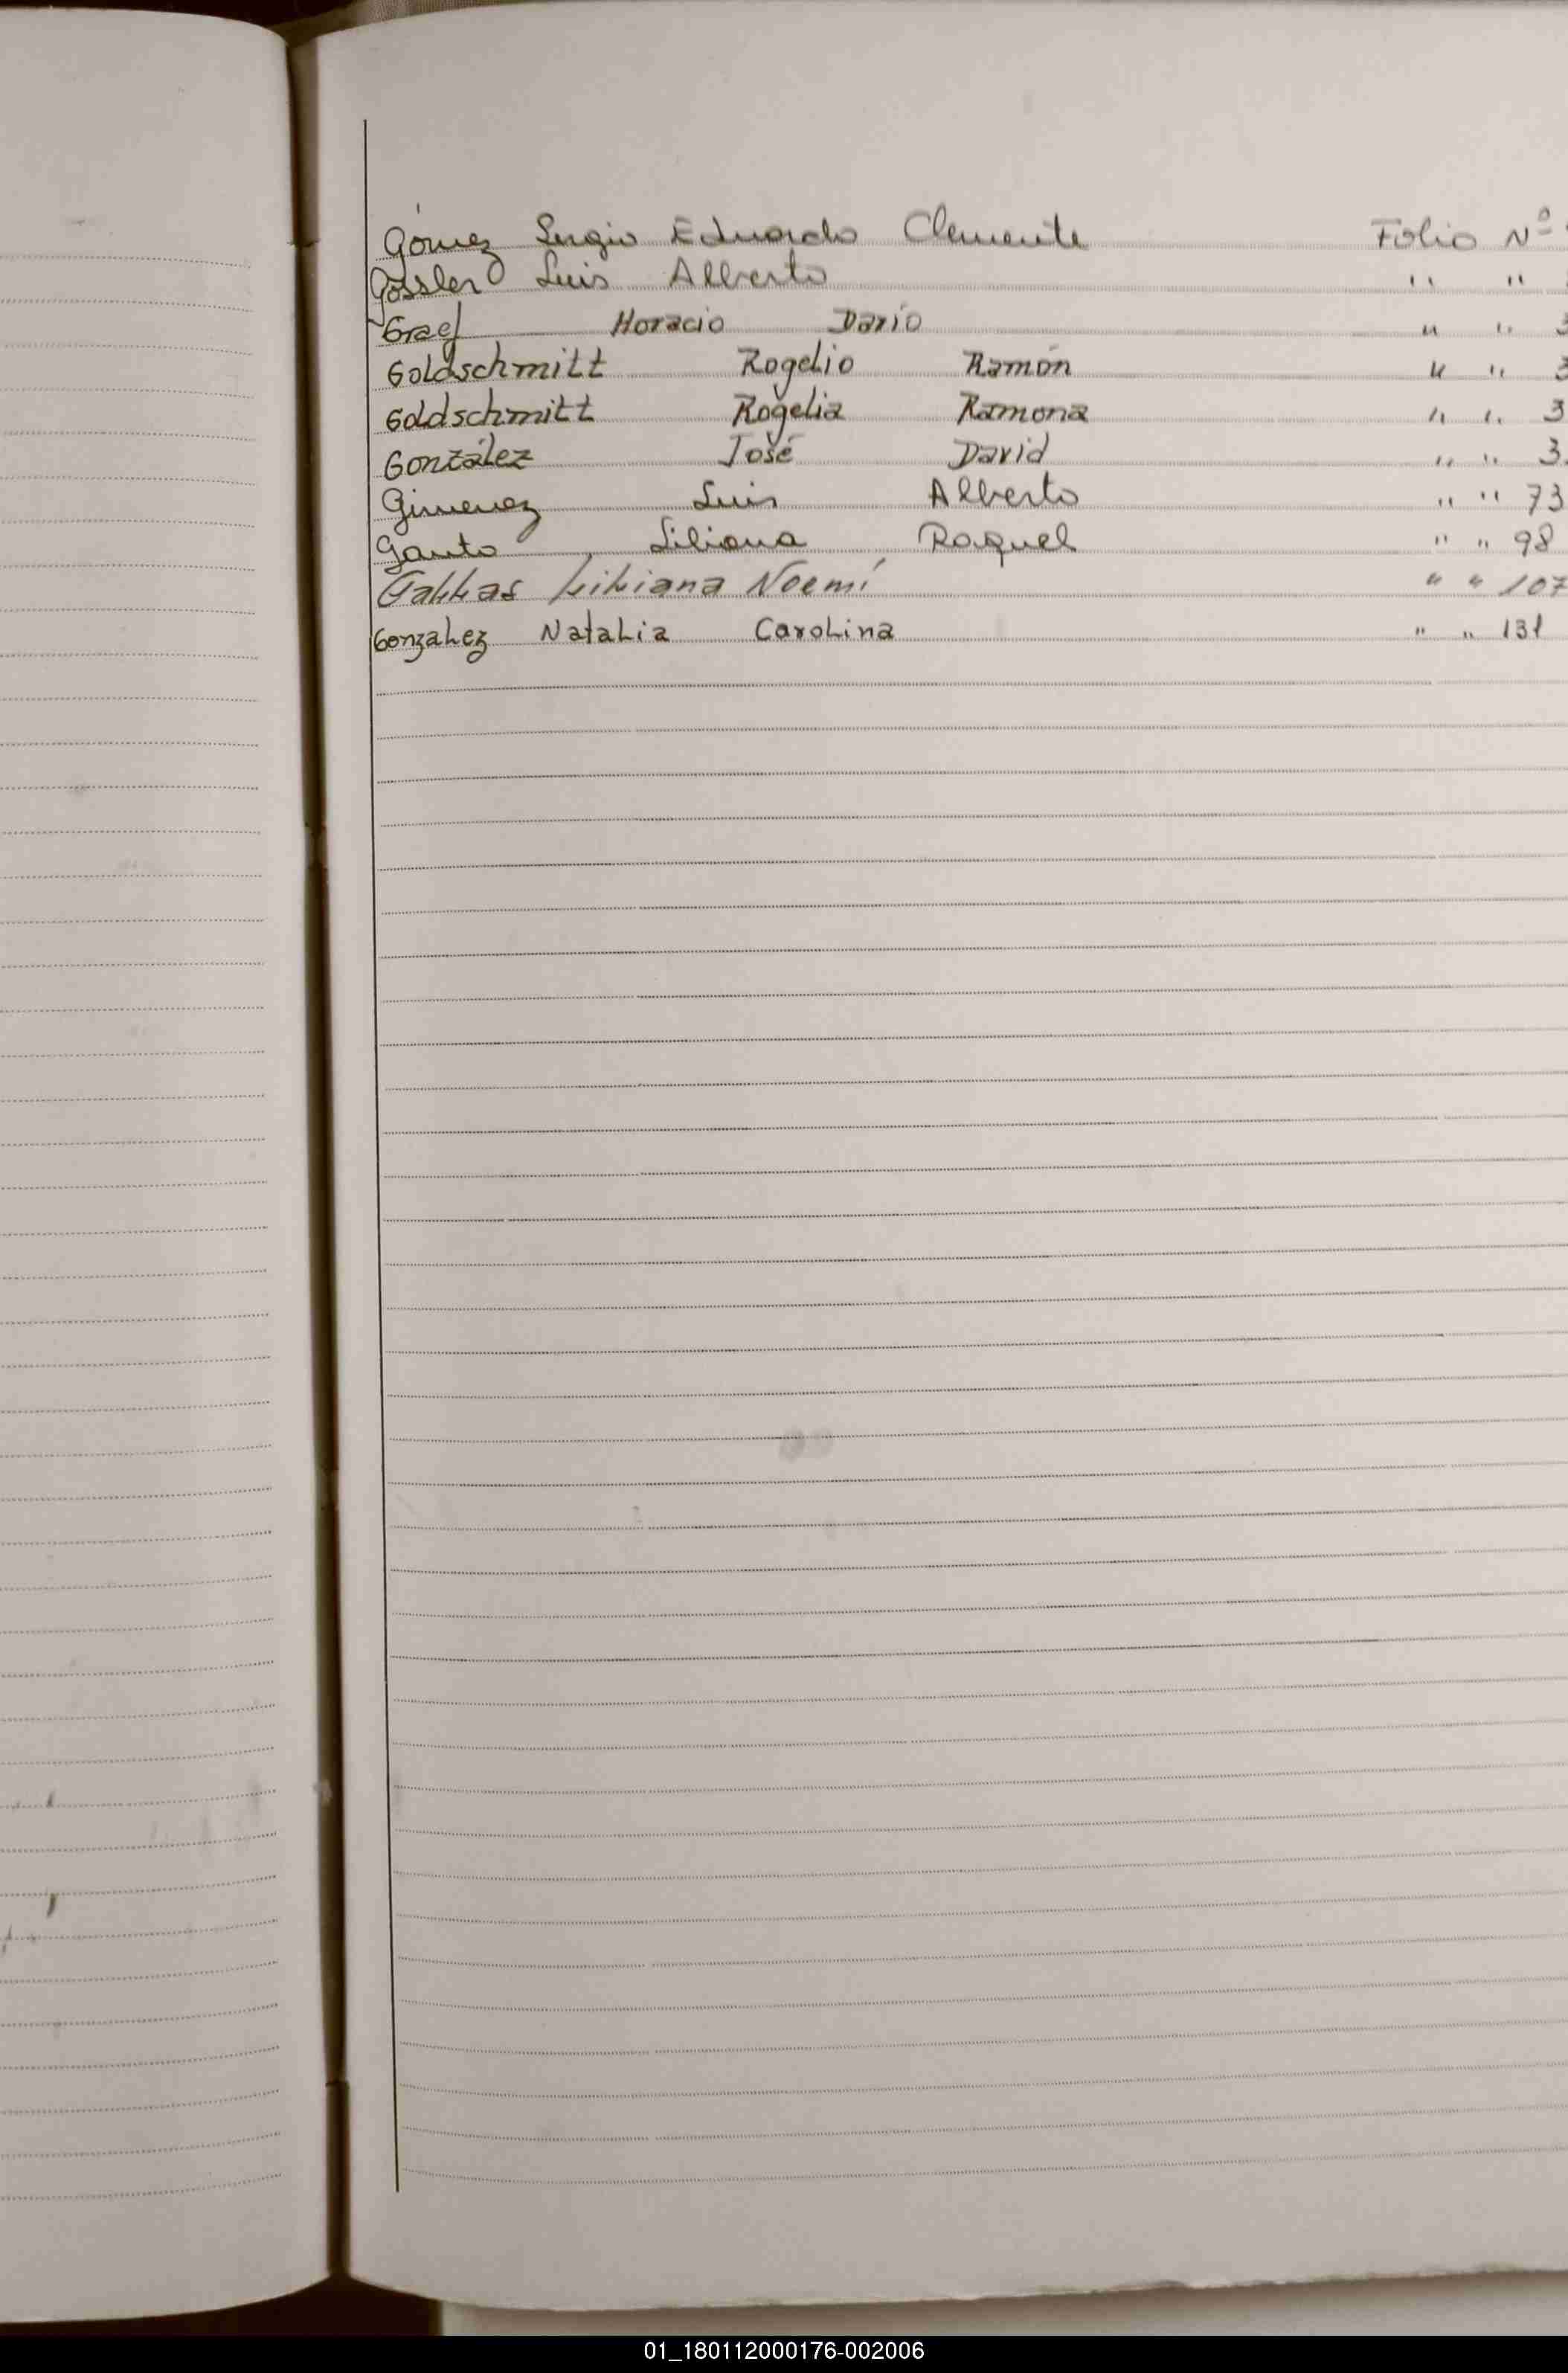 Gómez Sergio Eduardo Clemente Folio Nº
Gossler Luis Alberto " "
Graef Horacio Darío " " 3
Goldschmitt Rogelio Ramón " " 3
Goldschmitt Rogelia Ramona " " 3
González José David " " 3
Gimenez Luis Alberto " " 73
Gauto Liliana Raquel " " 98
Liliana Noemí " " 107
Gonzalez Natalia Carolina " " 131
01_180112000176-002006